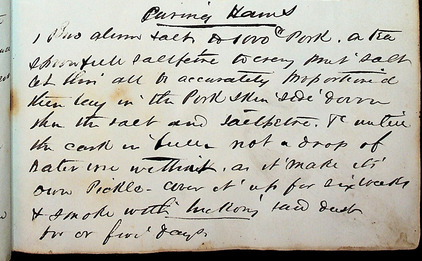 Curing Hams
1 Bus alum salt to 1000 lb Pork. a tea
spoonfull saltpetre to every salt
let this all be accurately proportioned
then lay in the Pork skin side down
then the salt and saltpetre. &c untill
the cask is full not a drop of
water use we think, as it make its
own Pickle - cover it up for six weeks
& smoke with hickory saw dust
for or five days